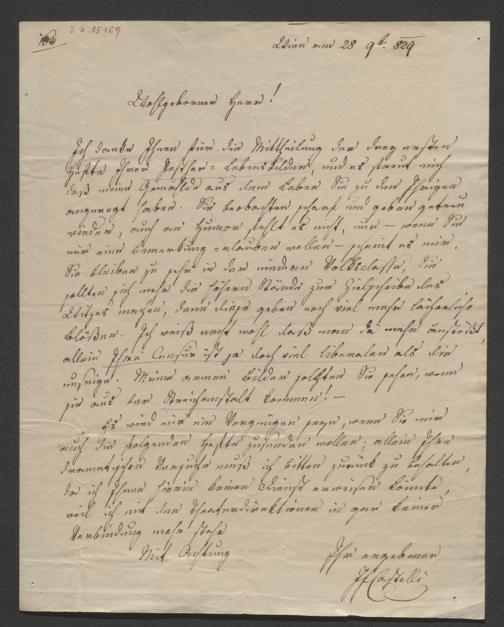 163
I. N. 85169
Wien am 28 9b. 829
Wohlgeborner Herr!
Ich danke Ihnen für die Mittheilung der drey ersten
Hefte Ihrer Pesther-Lebensbilder, und es freut mich
daß meine Gemählde aus dem Leben Sie zu den Ihrigen
angeregt haben. Sie beobachten scharf und geben getreu
wieder, auch an Humor fehlt es nicht, nur – wenn Sie
mir eine Bemerkung erlauben wollen – scheint es mir,
Sie bleiben zu sehr in der niedern Volksclasse, Sie
sollten sich mehr die höhern Stände zur Zielscheibe des
Witzes machen, denn diese geben noch viel mehr lächerliche
Blößen. Ich weiß recht wohl daß man da mehr anstößt,
allein Ihre Censur ist ja doch viel liberaler als die
unsrige. Meine armen Bilder sollten Sie sehen, wenn
sie aus der Streichanstalt kommen! –
Es wird mir ein Vergnügen seyn, wenn Sie mir
auch die folgenden Hefte zusenden wollen; allein Ihre
dramatischen Versuche muß ich bitten zurück zu behalten,
da ich Ihnen hierin keinen Dienst erweisen könnte,
weil ich mit den Theaterdirektionen in gar keiner
Verbindung mehr stehe
Mit Achtung
Ihr ergebener
JFCastelli